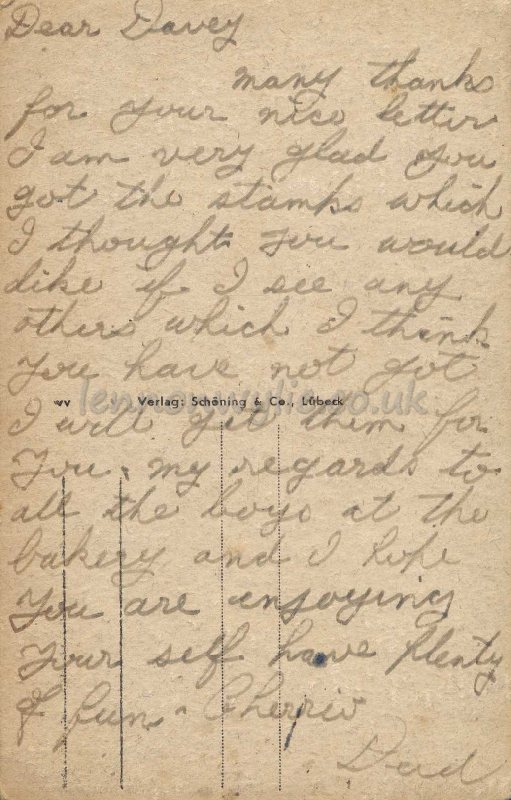 Dear Davey
many thanks
for your nice letter
I am very glad you
got the stamps which
I thought you would
like if I see any
others which I think
you have not got
vv Verlag: Schöning & Co., Lübeck
I will get them for
You. my regards to
all the boys at the
bakery and I hope
You are enjoying
Your self have plenty
of fun - Cherrio
Dad